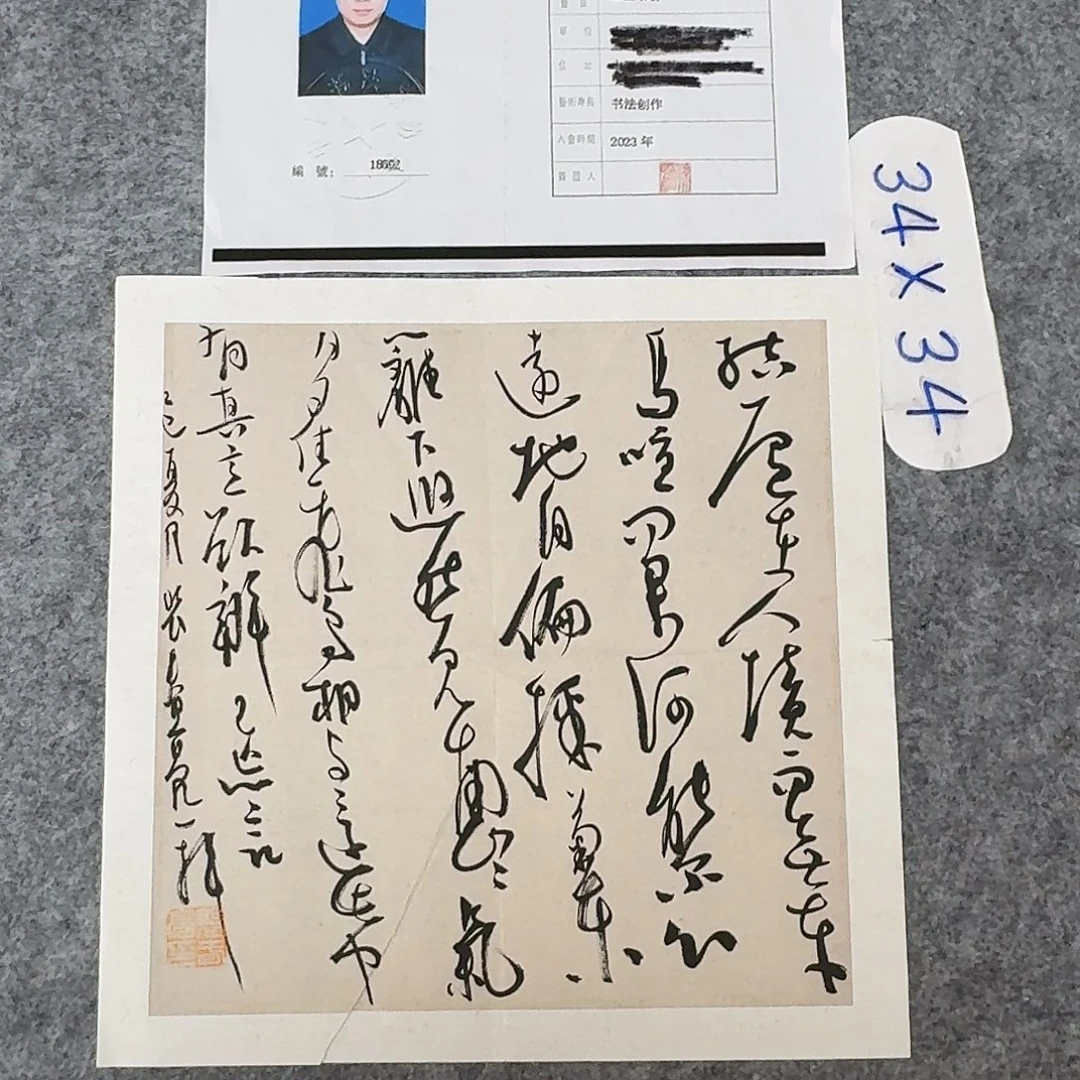 單 位
住 址
藝術專長 书法创作
入會時間 2023 年
編 號: 18692
34 X 34
結廬在人境而無車
馬喧問君何能爾心
遠地自偏採菊東
籬下悠然見南山〻氣
日夕佳飛鳥相與還此中
有真意欲辨已忘言
乙巳夏月